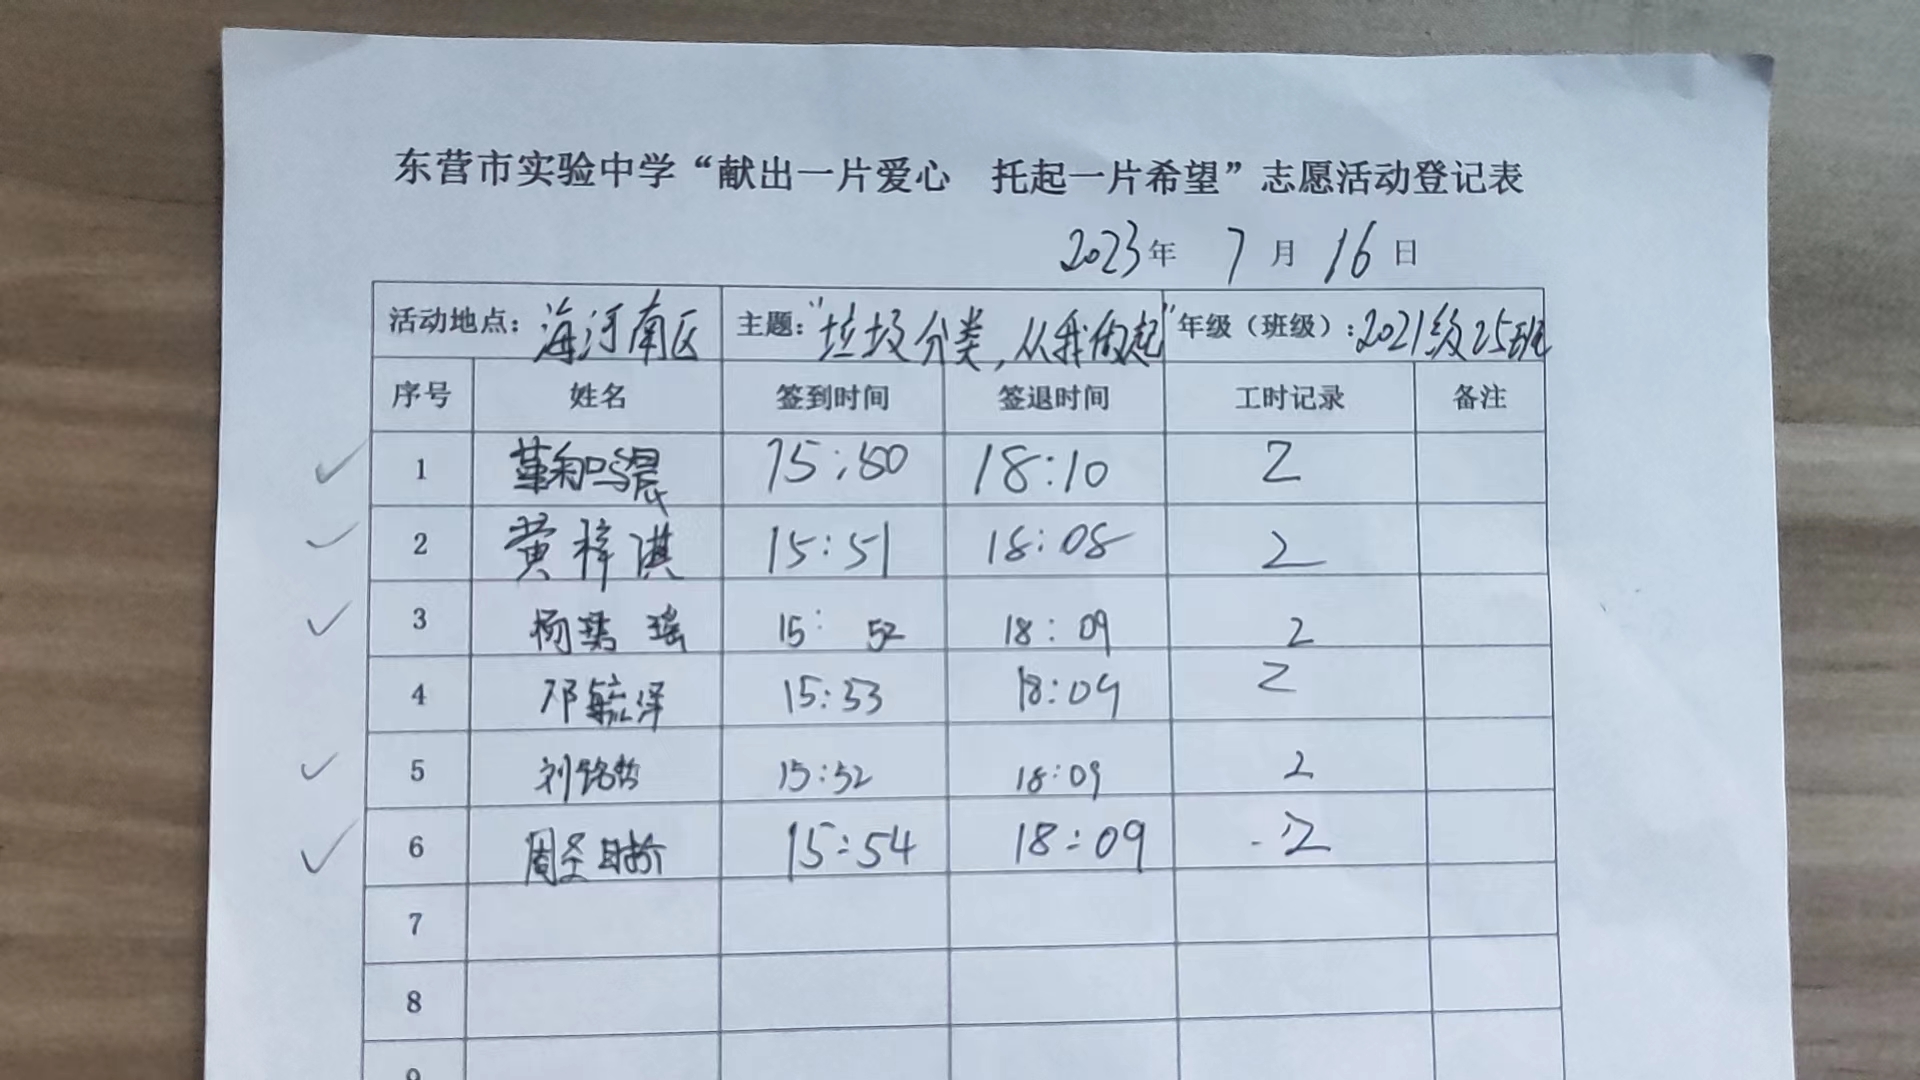 东营市实验中学“献出一片爱心 托起一片希望”志愿活动登记表
2023年 7 月 16 日
活动地点：海河南区 主题：“垃圾分类，从我做起” 年级（班级）：2021级25班
序号 姓名 签到时间 签退时间 工时记录 备注
1 15:50 18:10 2
2 黄梓淇 15:51 18:08 2
3 杨 瑶 15:52 18:09 2
4 邓毓泽 15:53 18:09 2
5 刘铭哲 15:52 18:09 2
6 周圣 15:54 18:09 2
7
8
9